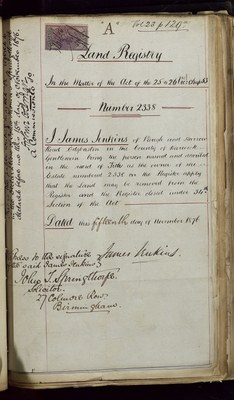 "A"
Vol 22 p 129
Land Registry
In the Matter of the Act of the 25 & 26 Vic: Chap 53
Number 2338
I James Jenkins of Plough and Harrow
Road Edgbaston in the County of Warwick
Gentleman being the person named and described
in the record of Title as the owner of an
Estate numbered 2338 on the Register apply
that the Land may be removed from the
Register and the Register closed under 34th
Section of the Act
Dated this fifteenth day of November 1876
Witness to the signature of
the said James Jenkins
James Jenkins
John T. Sharpe
Solicitor
27 Colmore Row
Birmingham
day of November 1876
a Commissioner to